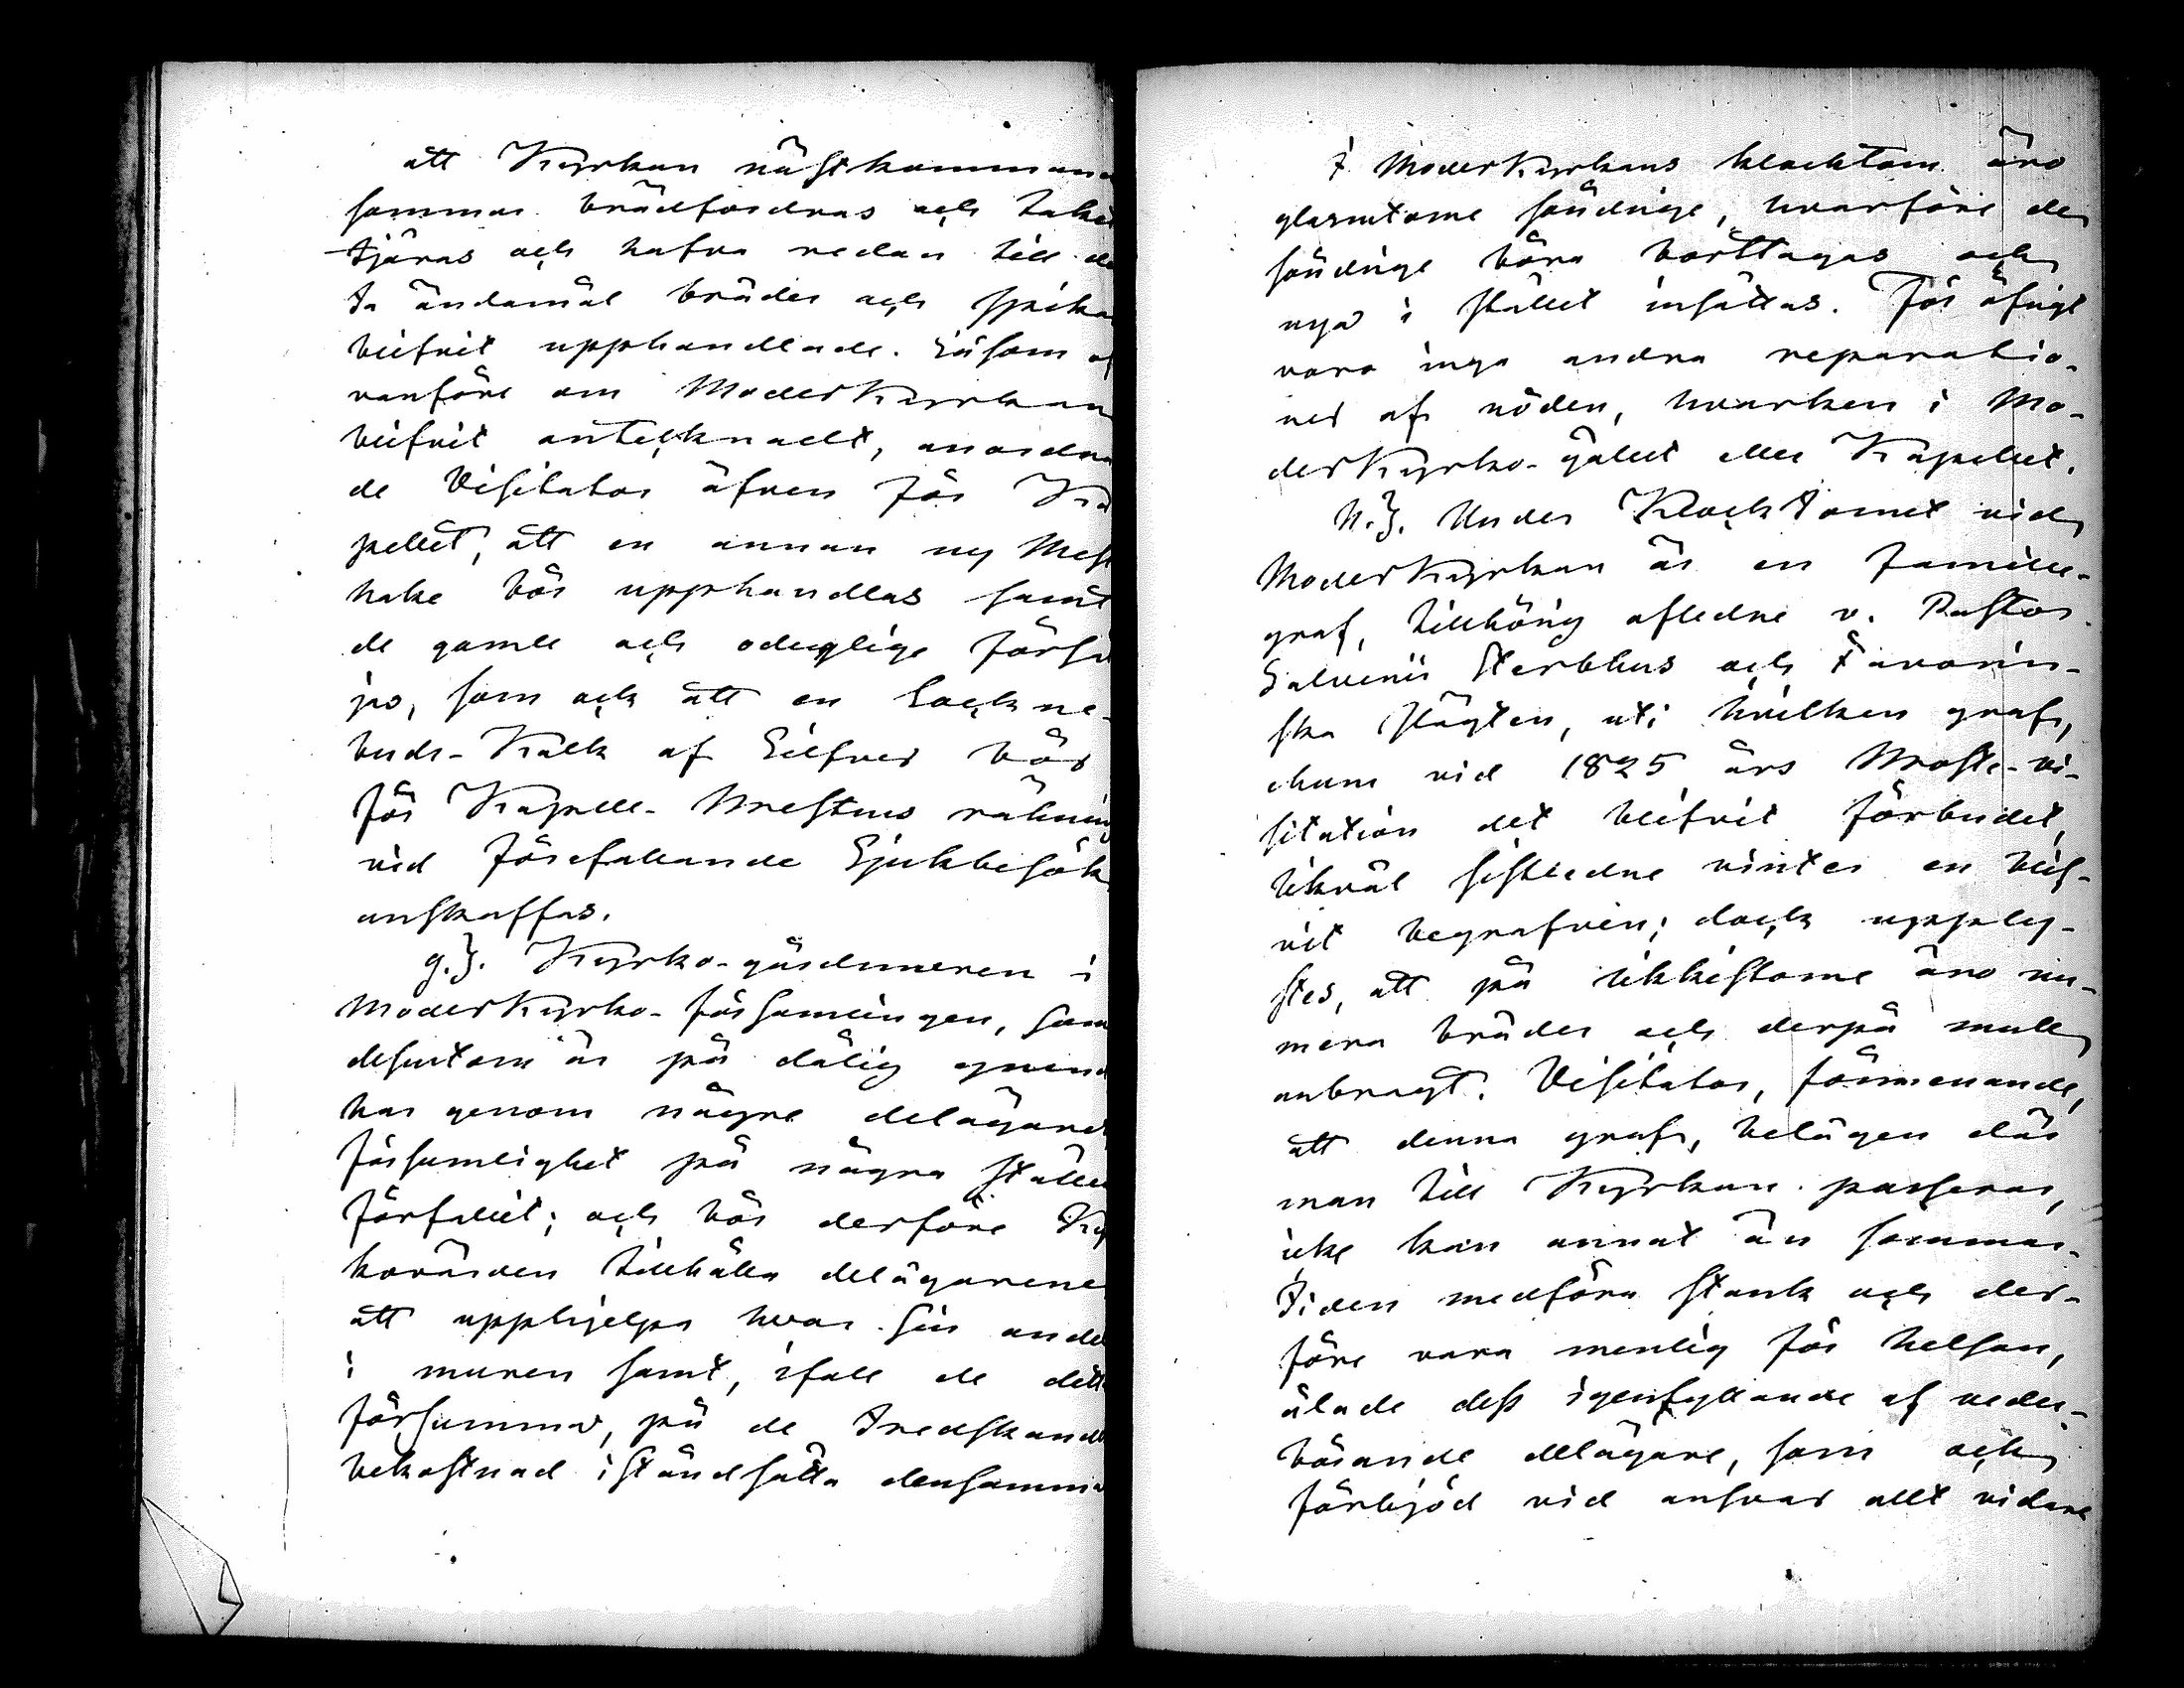 att Kyrkan nästkommand
sommar brädfordras och taket
tjäras och hafva redan till det
ta ändamål bräder och spikar
blifvit upphandlade. Såsom of
vanföre om ModerKyrkan
blifvit antecknadt, anordna
de Visitator äfven för Ka
pellet, att en annan ny Mess
hake bör upphandlas samt
de gamle och odugliga försä
jas, som ock att en Sockne-
buds-Kalk af Silfver bör
för Kapells-Prestens räkning
vid förefallande Sjukbesök
anskaffas.
g.). Kyrko-gårdmuren i
ModerKyrko-församlingen, som
desutom är på dålig grund
har genom någre delägares
försumlighet på några ställen
förfallit; och bör derföre Ky
korådet tillhålla delägarene
att upphjelpa hvar sin andel
i muren samt, ifall de detta
försumma, på de tredskande
bekostnad iståndsätta densamma
I ModerKyrkans klocktorn äro
glasrutorne söndrige, hvarföre de
söndrige böra borttagas och
nya i stället insättas. För öfrigt
voro inga andra reparatio-
ner af nöden, hvarken i Mo-
derKyrko-gället eller Kapellet.
h.). Under Klocktornet vid
ModerKyrkan är en familie-
graf, tillhörig afledne v. Pastor
Salvenii Sterbhus och Favorin-
ska slägten, uti hvilken graf,
ehuru vid 1825 års Prosts-vi-
sitation det blifvit förbudet,
likväl sistledne vinter en blif-
vit begrafven; dock upply-
stes, att på likkistorne äro nu-
mera bräder och derpå mull
anbragt. Visitator, förmenande,
att denna graf, belägen där
man till Kyrkan passerar,
icke kan annat än sommar-
tiden medföra stank och der-
före vara menlig för helsan,
ålade dess igenfyllande af veder-
börande delägare, som ock
förbjöd vid ansvar allt vidare